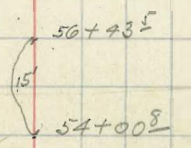 56+43⁵
15'
54+00⁸